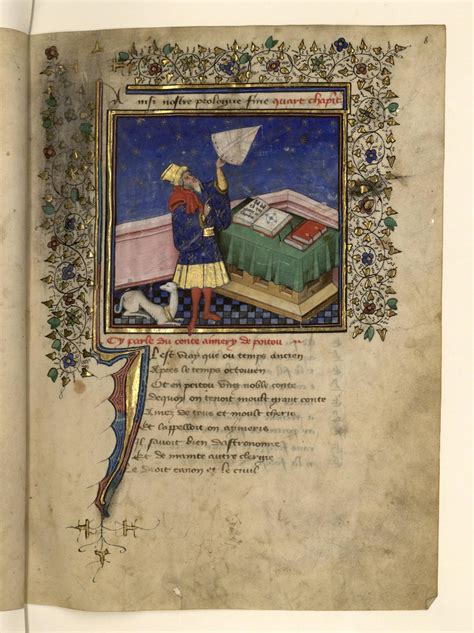 8
Ainsi nostre prologue fine quart chapitre
Cy parle du conte aimery de poitou
Il est vray que ou temps ancien
Apres le temps octouien
Ot en poitou ung noble conte
Dequoy on tenoit moult grant conte
Amez de tous et moult cherie
Et lappelloit on aymeris
Il sauoit bien dastronomie
Et de mainte autre clergie
Le droit canon et le ciuil